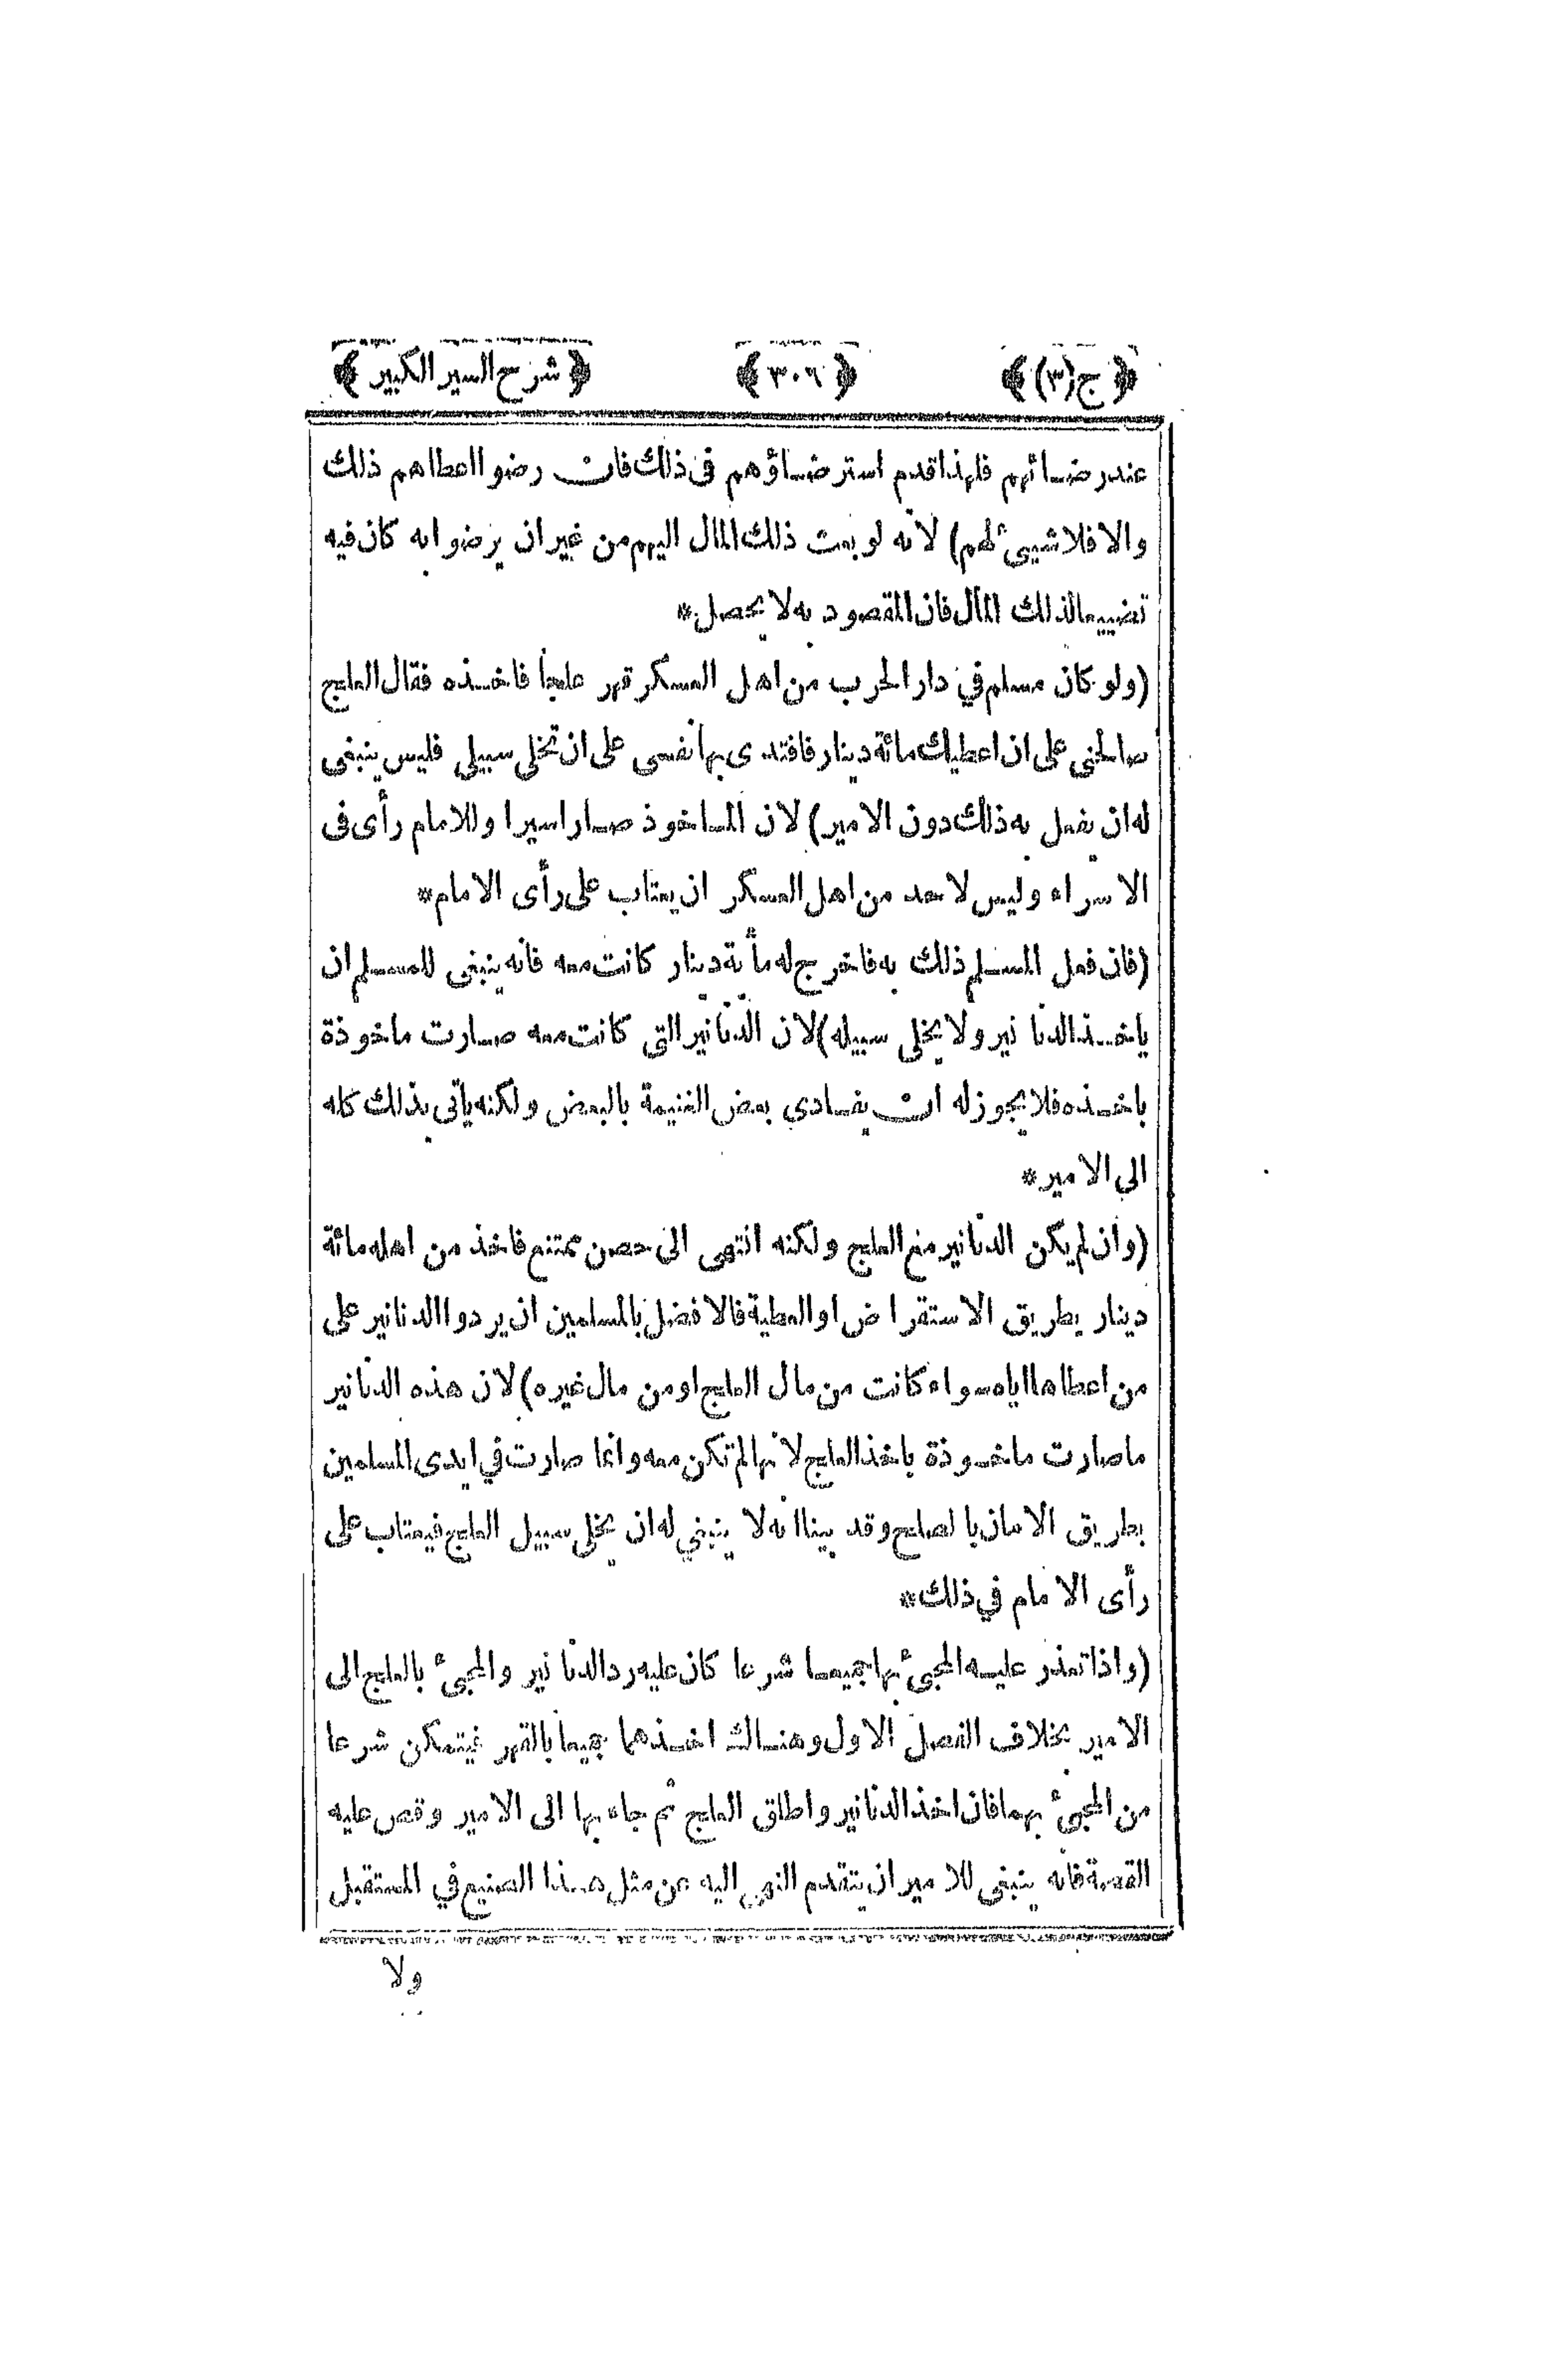 ﴿ج(٣)﴾ ﴿٣٠٦﴾ ﴿شرح السير الكبير﴾
عند رضائهم فلهذا قدم استرضاؤهم فى ذلك فان رضوا اعطاهم ذلك
والا فلا شيىٔ لهم) لانه لو بعث ذلك المال اليهم من غير ان يرضوا به كان فيه
تضييعا لذلك المال فان المقصود به لا يحصل*
(ولو كان مسلم في دار الحرب من اهل العسكر قهر علجا فاخذه فقال العلج
صالحنى على ان اعطيك مائة دينار فافتدى بها نفسى على ان تخلى سبيلي فليس ينبغى
له ان يفعل به ذلك دون الامير) لان الماخوذ صار اسيرا وللامام رأى فى
الاسراء وليس لاحد من اهل العسكر ان يفتاب على رأى الامام*
(فان فعل المسلم ذلك به فاخرج له مأية دينار كانت معه فانه ينبغى للمسلم ان
ياخذ الدنانير ولا يخلى سبيله) لان الدنانير التى كانت معه صارت ماخوذة
باخذه فلا يجوز له ان يفادى بعض الغنيمة بالبعض ولكنه ياتى بذلك كله
الى الامير*
(وان لم يكن الدنانير مع العلج ولكنه انتهى الى حصن ممتنع فاخذ من اهله مائة
دينار بطريق الاستقراض او العطية فالافضل بالمسلمين ان يردوا الدنانير على
من اعطاها اياه سواء كانت من مال العلج او من مال غيره) لان هذه الدنانير
ما صارت ماخوذة باخذ العلج لانها لم تكن معه وانما صارت في ايدى المسلمين
بطريق الامان بالصلح وقد بينا انه لا ينبغي له ان يخلى سبيل العلج فيفتاب على
رأى الامام في ذلك*
(واذا تعذر عليه المجىٔ بها جميعا شرعا كان عليه رد الدنانير والمجىٔ بالعلج الى
الامير بخلاف الفصل الاول وهناك اخذهما جميعا بالقهر فيتمكن شرعا
من المجىٔ بهما فان اخذ الدنانير واطلق العلج ثم جاء بها الى الامير وقص عليه
القصة فانه ينبغى للامير ان يتقدم النهى اليه عن مثل هذا الصنيع في المستقبل
ولا